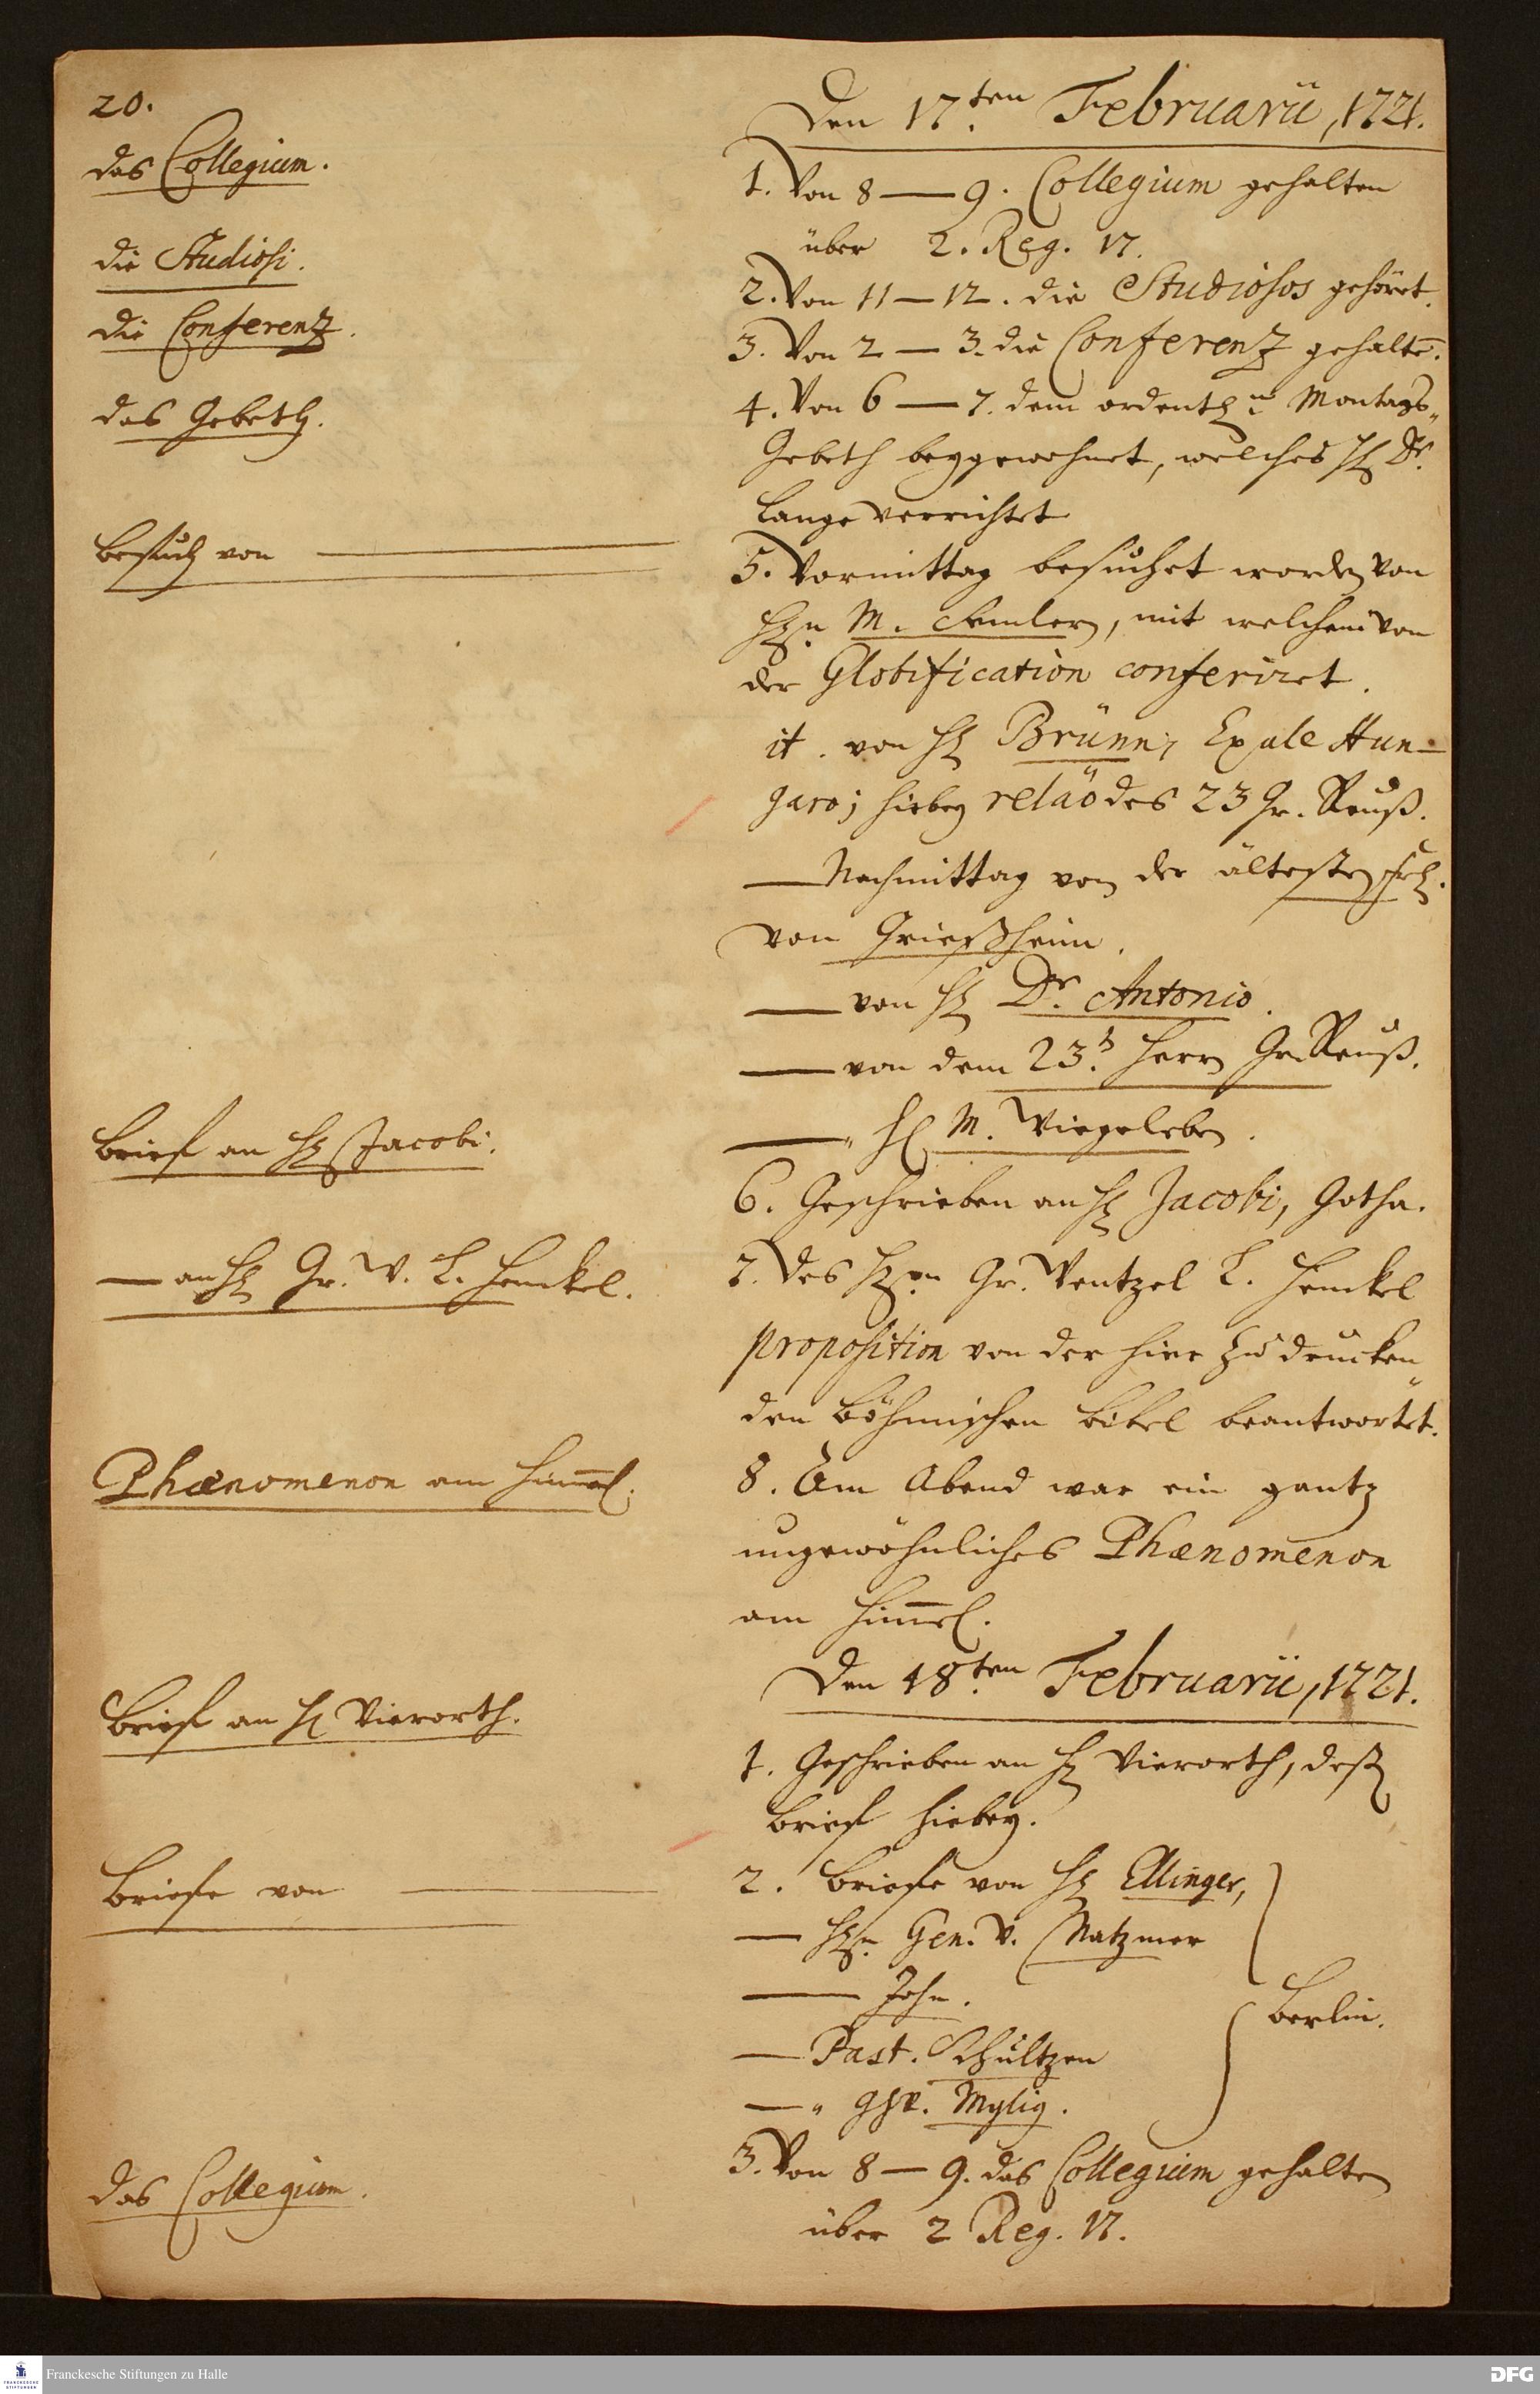 20.
Den 17.ten Februarii, 1721.
das Collegium.
1. Von 8 — 9. Collegium gehalten
über 2. Reg. 17.
die Studiosi.
2. Von 11 — 12. die Studiosos gehöret.
die Conferenz.
3. Von 2 — 3. die Conferenz gehalte̅.
das Gebeth.
4. Von 6 — 7. dem ordentl. Montags-
Gebeth beygewohnet, welches H. Dr.
Lange verrichtet
Besuch von —
5. Vormittag besuchet worden von
H.n M. Semlern, mit welchem von
der Glotification conferiret.
it. von H. Brünn, Exule Hun-
garo; hiebey des 23 Gr. Reuß.
— Nachmittag von der ältesten Frl.
von Grießheim.
— von H. Dr. Antonio.
— von dem 23. Herrn Gr. Reuß.
— " H. M. Wiegeleben.
Brief an H. Jacobi.
6. Geschrieben an H. Jacobi, Gotha.
— an H. Gr. W. L. Henckel.
7. Des H.n Gr. Wentzel L. Henckel
proposition von der hier zu drucken-
den Böhmischen Bibel beantwortet.
Phænomenon am Him̅el.
8. Am Abend war ein gantz
ungewöhnliches Phænomenon
am Him̅el.
Den 18.ten Februarii, 1721.
Brief an H. Vierorth.
1. Geschrieben an H. Vierorth, deß
Brief hiebey.
Briefe von —
2. Briefe von H. Ellinger,
— H.n Gen. v. Natzmer
— John.
— Past. Schultzen
— " Mylig.
Berlin.
das Collegium.
3. Von 8 — 9. das Collegium gehalten
über 2 Reg. 17.
Franckesche Stiftungen zu Halle
FRANCKESCHE STIFTUNGEN
DFG